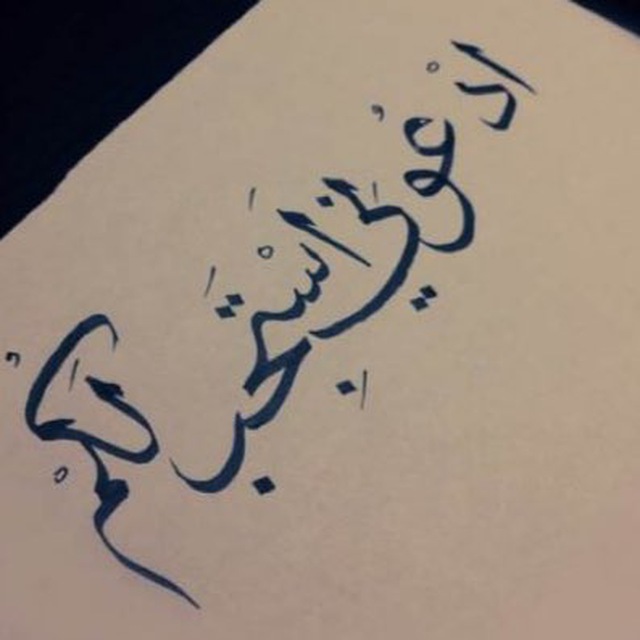 ادْعُوني أَسْتَجِب لَكُمْ